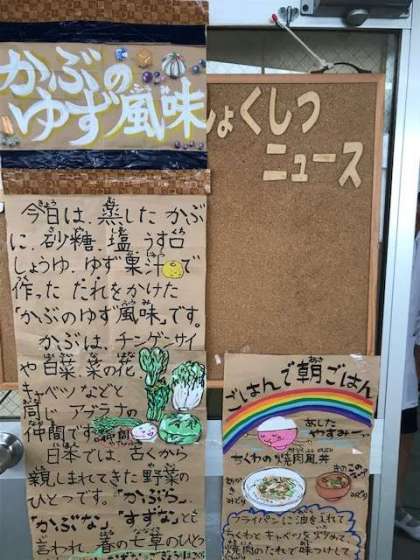 かぶの
ゆず風味
しょくしつ
ニュース
今日は、蒸したかぶ
に、砂糖、塩、うす口
しょうゆ、ゆず果汁で
作ったたれをかけた
「かぶのゆず風味」です。
かぶは、チンゲンサイ
や白菜、菜の花
キャベツなどと
同じアブラナの
仲間です。
日本では、古くから
親しまれてきた野菜の
ひとつです。「かぶら」
「かぶな」、「すずな」とも
言われ、春の七草のひと
ごはんで朝ごはん
あした
やすみー
ちくわの焼肉風丼
フライパンに油を入れて